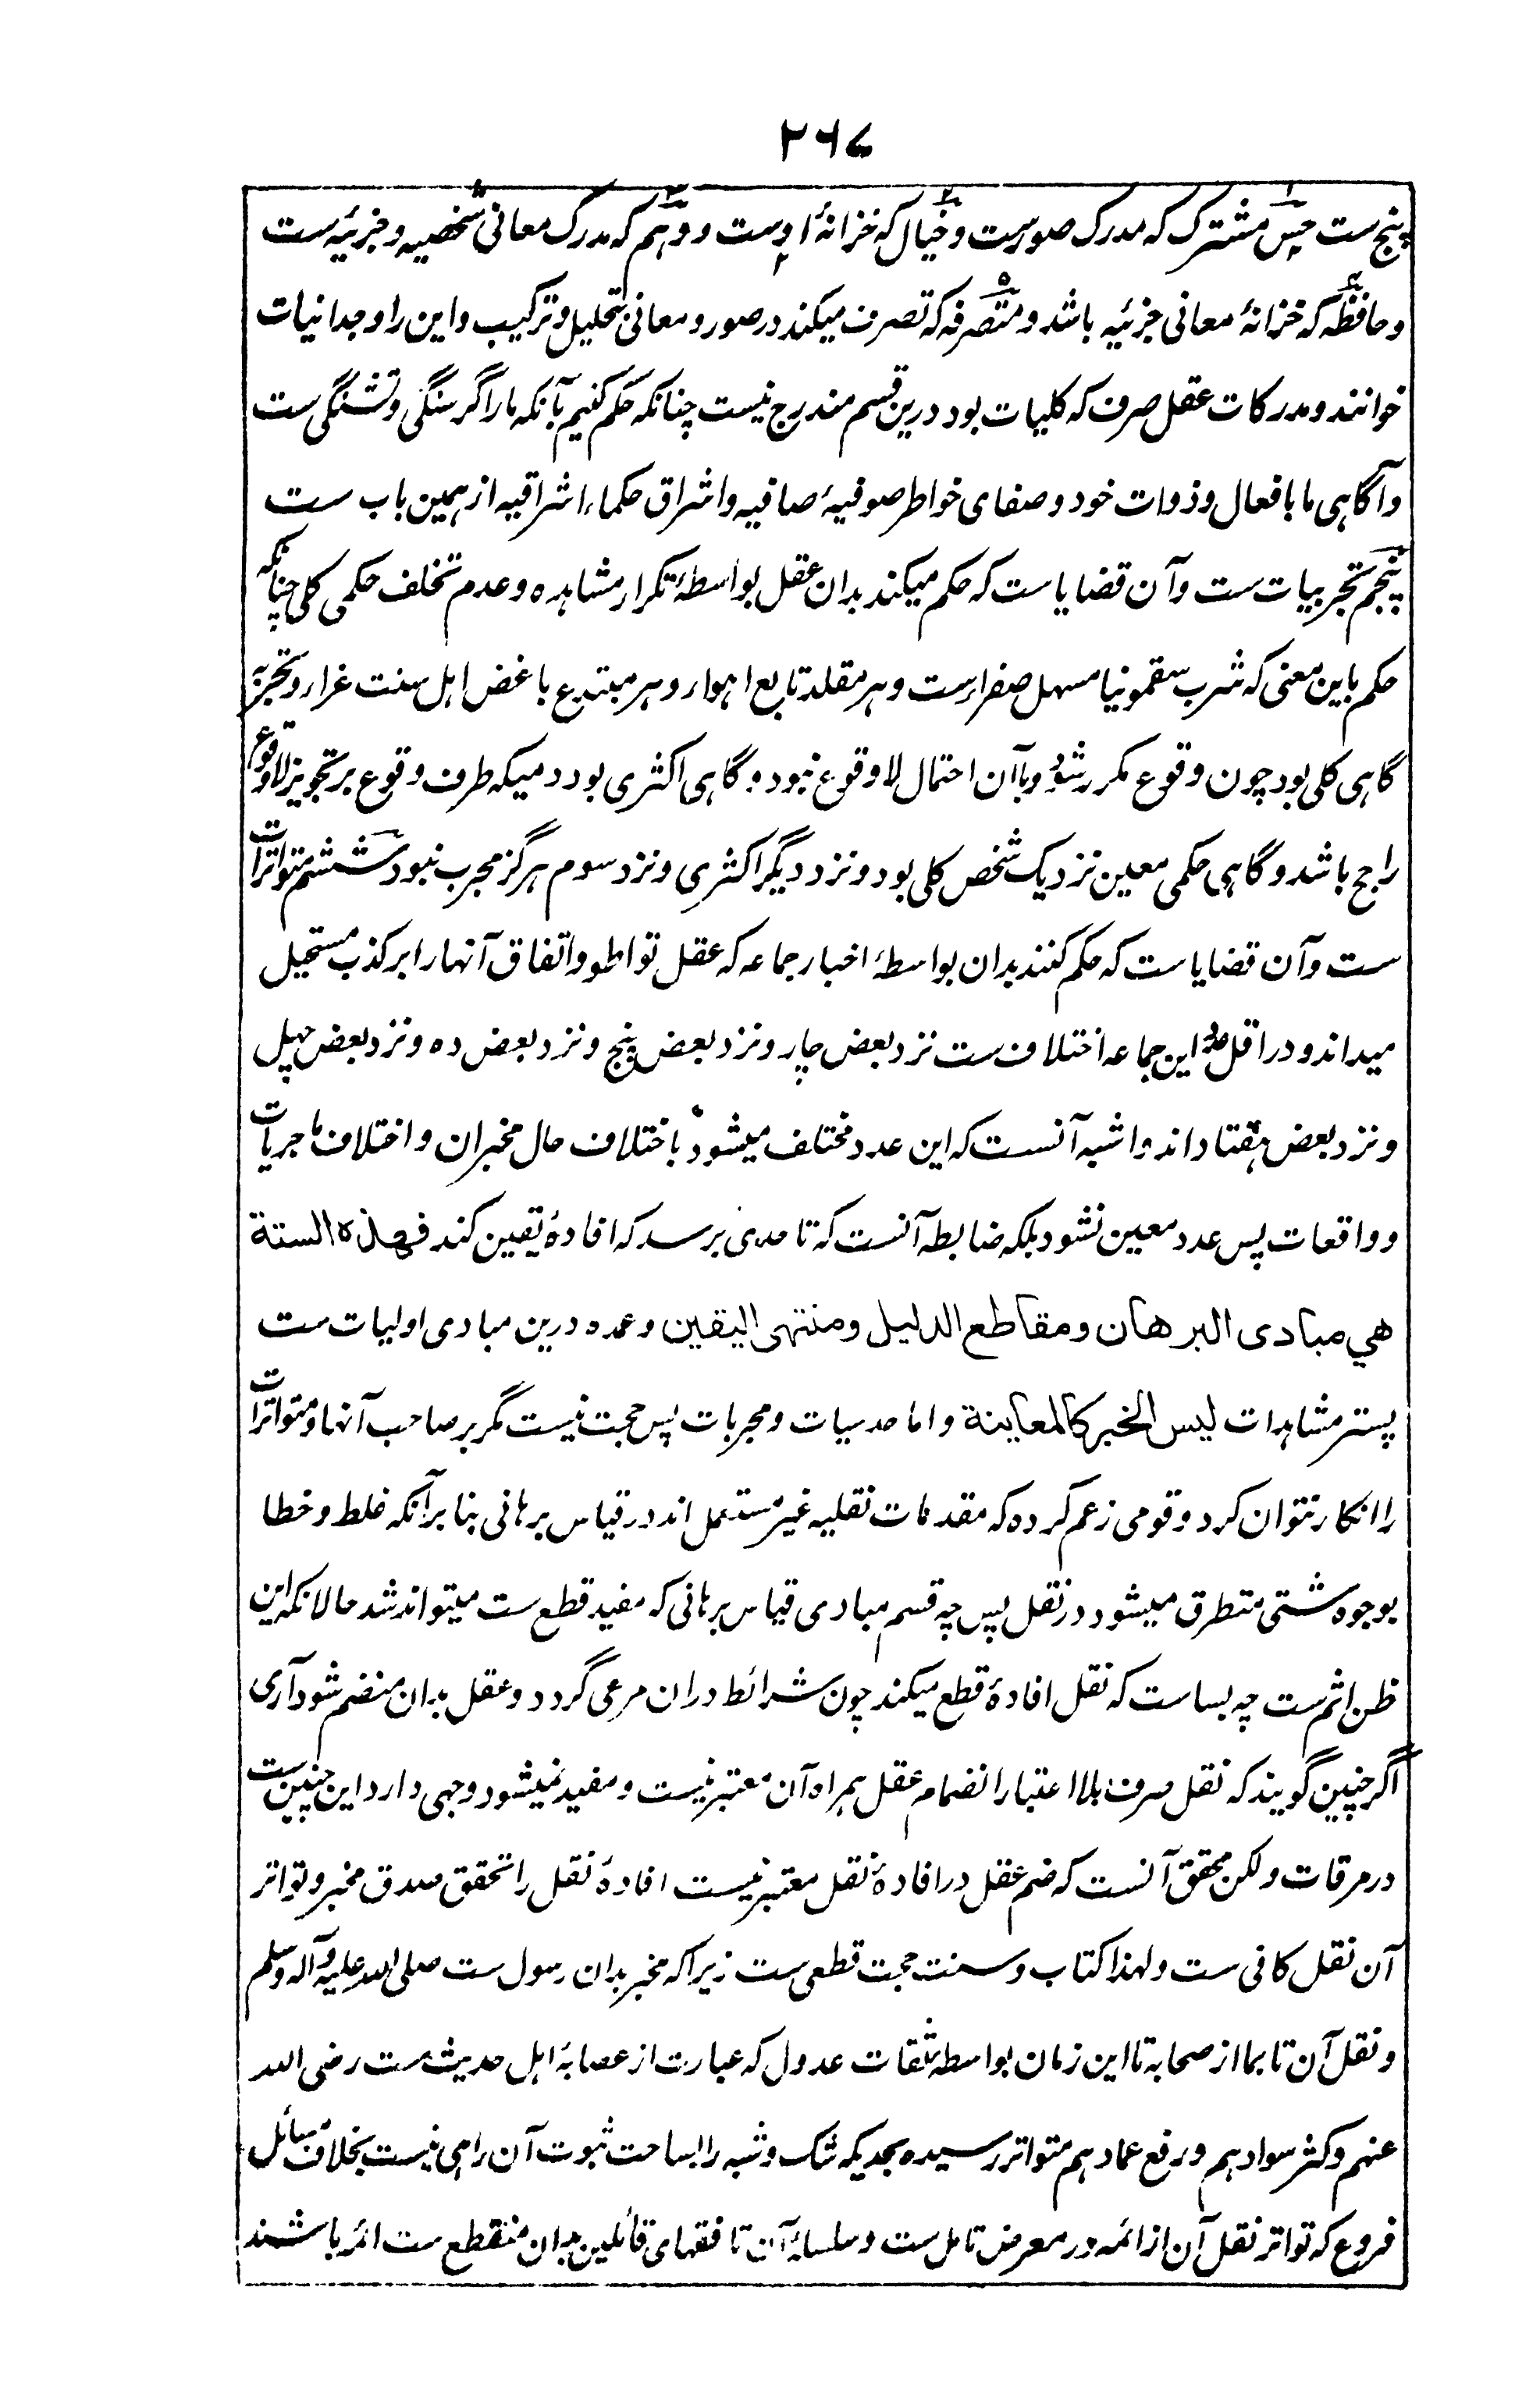 ۲۶۷
پنج ست حس مشترک که مدرک صورست و خیال که خزانۀ اوست و وهم که مدرک معانی شخصیه و جزئیه ست
و حافظه که خزانۀ معانی جزئیه باشد و متصرفه که تصرف میکند در صور و معانی بتحلیل و ترکیب و این را وجدانیات
خوانند و مدرکات عقل صرف که کلیات بود درین قسم مندرج نیست چنانکه حکم کنیم بآنکه ما را گرسنگی و تشنگی ست
و آگاهی ما بافعال و ذوات خود و صفای خواطر صوفیۀ صافیه و اشراق حکماء اشراقیه از همین باب ست
پنجم تجربیات ست و آن قضایا ست که حکم میکند بدان عقل بواسطۀ تکرار مشاهده و عدم تخلف حکمی کلی چنانکه
حکم باین معنی که شرب سقمونیا مسهل صفراست و هر مقلد تابع اهواء و هر مبتدع باغض اهل سنت غراء و تجربه
گاهی کلی بود چون وقوع مکرر شود و با آن احتمال لاوقوع نبود و گاهی اکثری بود دمیکه طرف وقوع بر تجویز لاوقوع
راجح باشد و گاهی حکمی معین نزد یک شخص کلی بود و نزد دیگر اکثری و نزد سوم هرگز مجرب نبود ششم متواترات
ست و آن قضایا ست که حکم کنند بدان بواسطۀ اخبار جماعه که عقل تواطو و اتفاق آنها را بر کذب مستحیل
میداند و در اقل عدد این جماعه اختلاف ست نزد بعض چار و نزد بعض پنج و نزد بعض ده و نزد بعض چهل
و نزد بعض هفتاد اند و اشبه آنست که این عدد مختلف میشود باختلاف حال مخبران و اختلاف ماجریات
و واقعات پس عدد معین نشود بلکه ضابطه آنست که تا حدی برسد که افادۀ یقین کند فهذه الستة
هي مبادی البرهان ومقاطع الدلیل ومنتهی الیقین و عمده درین مبادی اولیات ست
پستر مشاهدات لیس الخبر کالمعاینة و اما حدسیات و مجربات پس حجت نیست مگر بر صاحب آنها و متواترات
را انکار نتوان کرد و قومی زعم کرده که مقدمات نقلیه غیر مستعمل اند در قیاس برهانی بنا بر آنکه غلط و خطا
بوجوه شتی متطرق میشود در نقل پس چه قسم مبادی قیاس برهانی که مفید قطع ست میتواند شد حالانکه این
ظن اثم ست چه بسا ست که نقل افادۀ قطع میکند چون شرائط دران مرعی گردد و عقل بدان منضم شود آری
اگر چنین گویند که نقل صرف بلا اعتبار انضمام عقل همراه آن معتبر نیست و مفید نمیشود وجهی دارد این چنین ست
در مرقات ولکن محقق آنست که ضم عقل در افادۀ نقل معتبر نیست افادۀ نقل را تحقق صدق مخبر و تواتر
آن نقل کافی ست و لهذا کتاب و سنت حجت قطعی ست زیرا که مخبر بدان رسول ست صلی الله علیه وآله وسلم
و نقل آن تا بما از صحابه تا این زمان بواسطه ثقات عدول که عبارت از عصابۀ اهل حدیث ست رضی الله
عنهم و کثر سوادهم و رفع عمادهم متواتر رسیده بحدیکه شک و شبه را بساحت ثبوت آن راهی نیست بخلاف مسائل
فروع که تواتر نقل آن از ائمه در معرض تامل ست و سلسلۀ آن تا فقهای قائلین بدان منقطع ست ائمه باشند